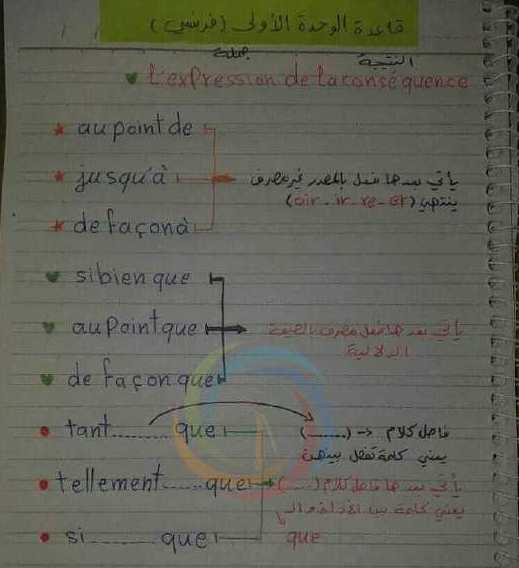 قاعدة الوحدة الأولى (فرنسي)
جملة النتيجة
L'expression de la conséquence
au point de
jusqu'à
de façon à
يأتي بعدها فعل بالمصدر غير مصرف
ينتهي (oir - ir - re - er)
si bien que
au point que
de façon que
يأتي بعدها فعل مصرف بالصيغة
الدلالية
tant ........ que
فاصل كلام <- (......)
يعني كلمة تفصل بينهن
tellement ...... que
يأتي بعدها فاصل كلام (......)
يعني كلمة بين الأداة والـ
que
si ........ que